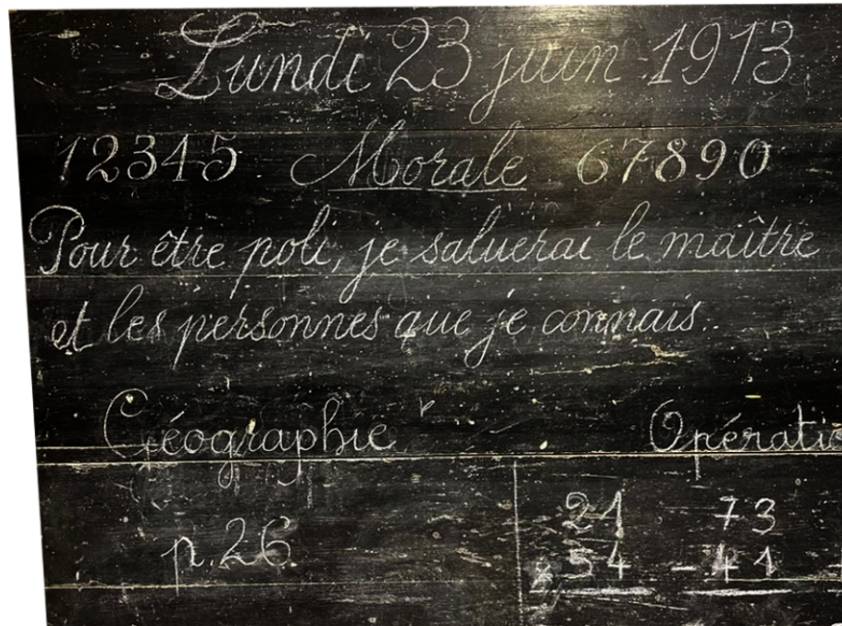 Lundi 23 juin 1913
12345 Morale 67890
Pour être poli, je saluerai le maître
et les personnes que je connais.
Géographie Opératio
p. 26 21 73
x 54 - 41